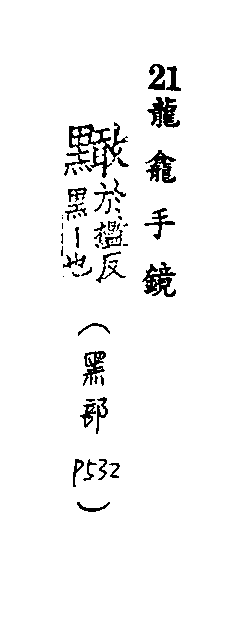 21龍龕手鏡
於檻反
黑丨也
(黑部 P532)